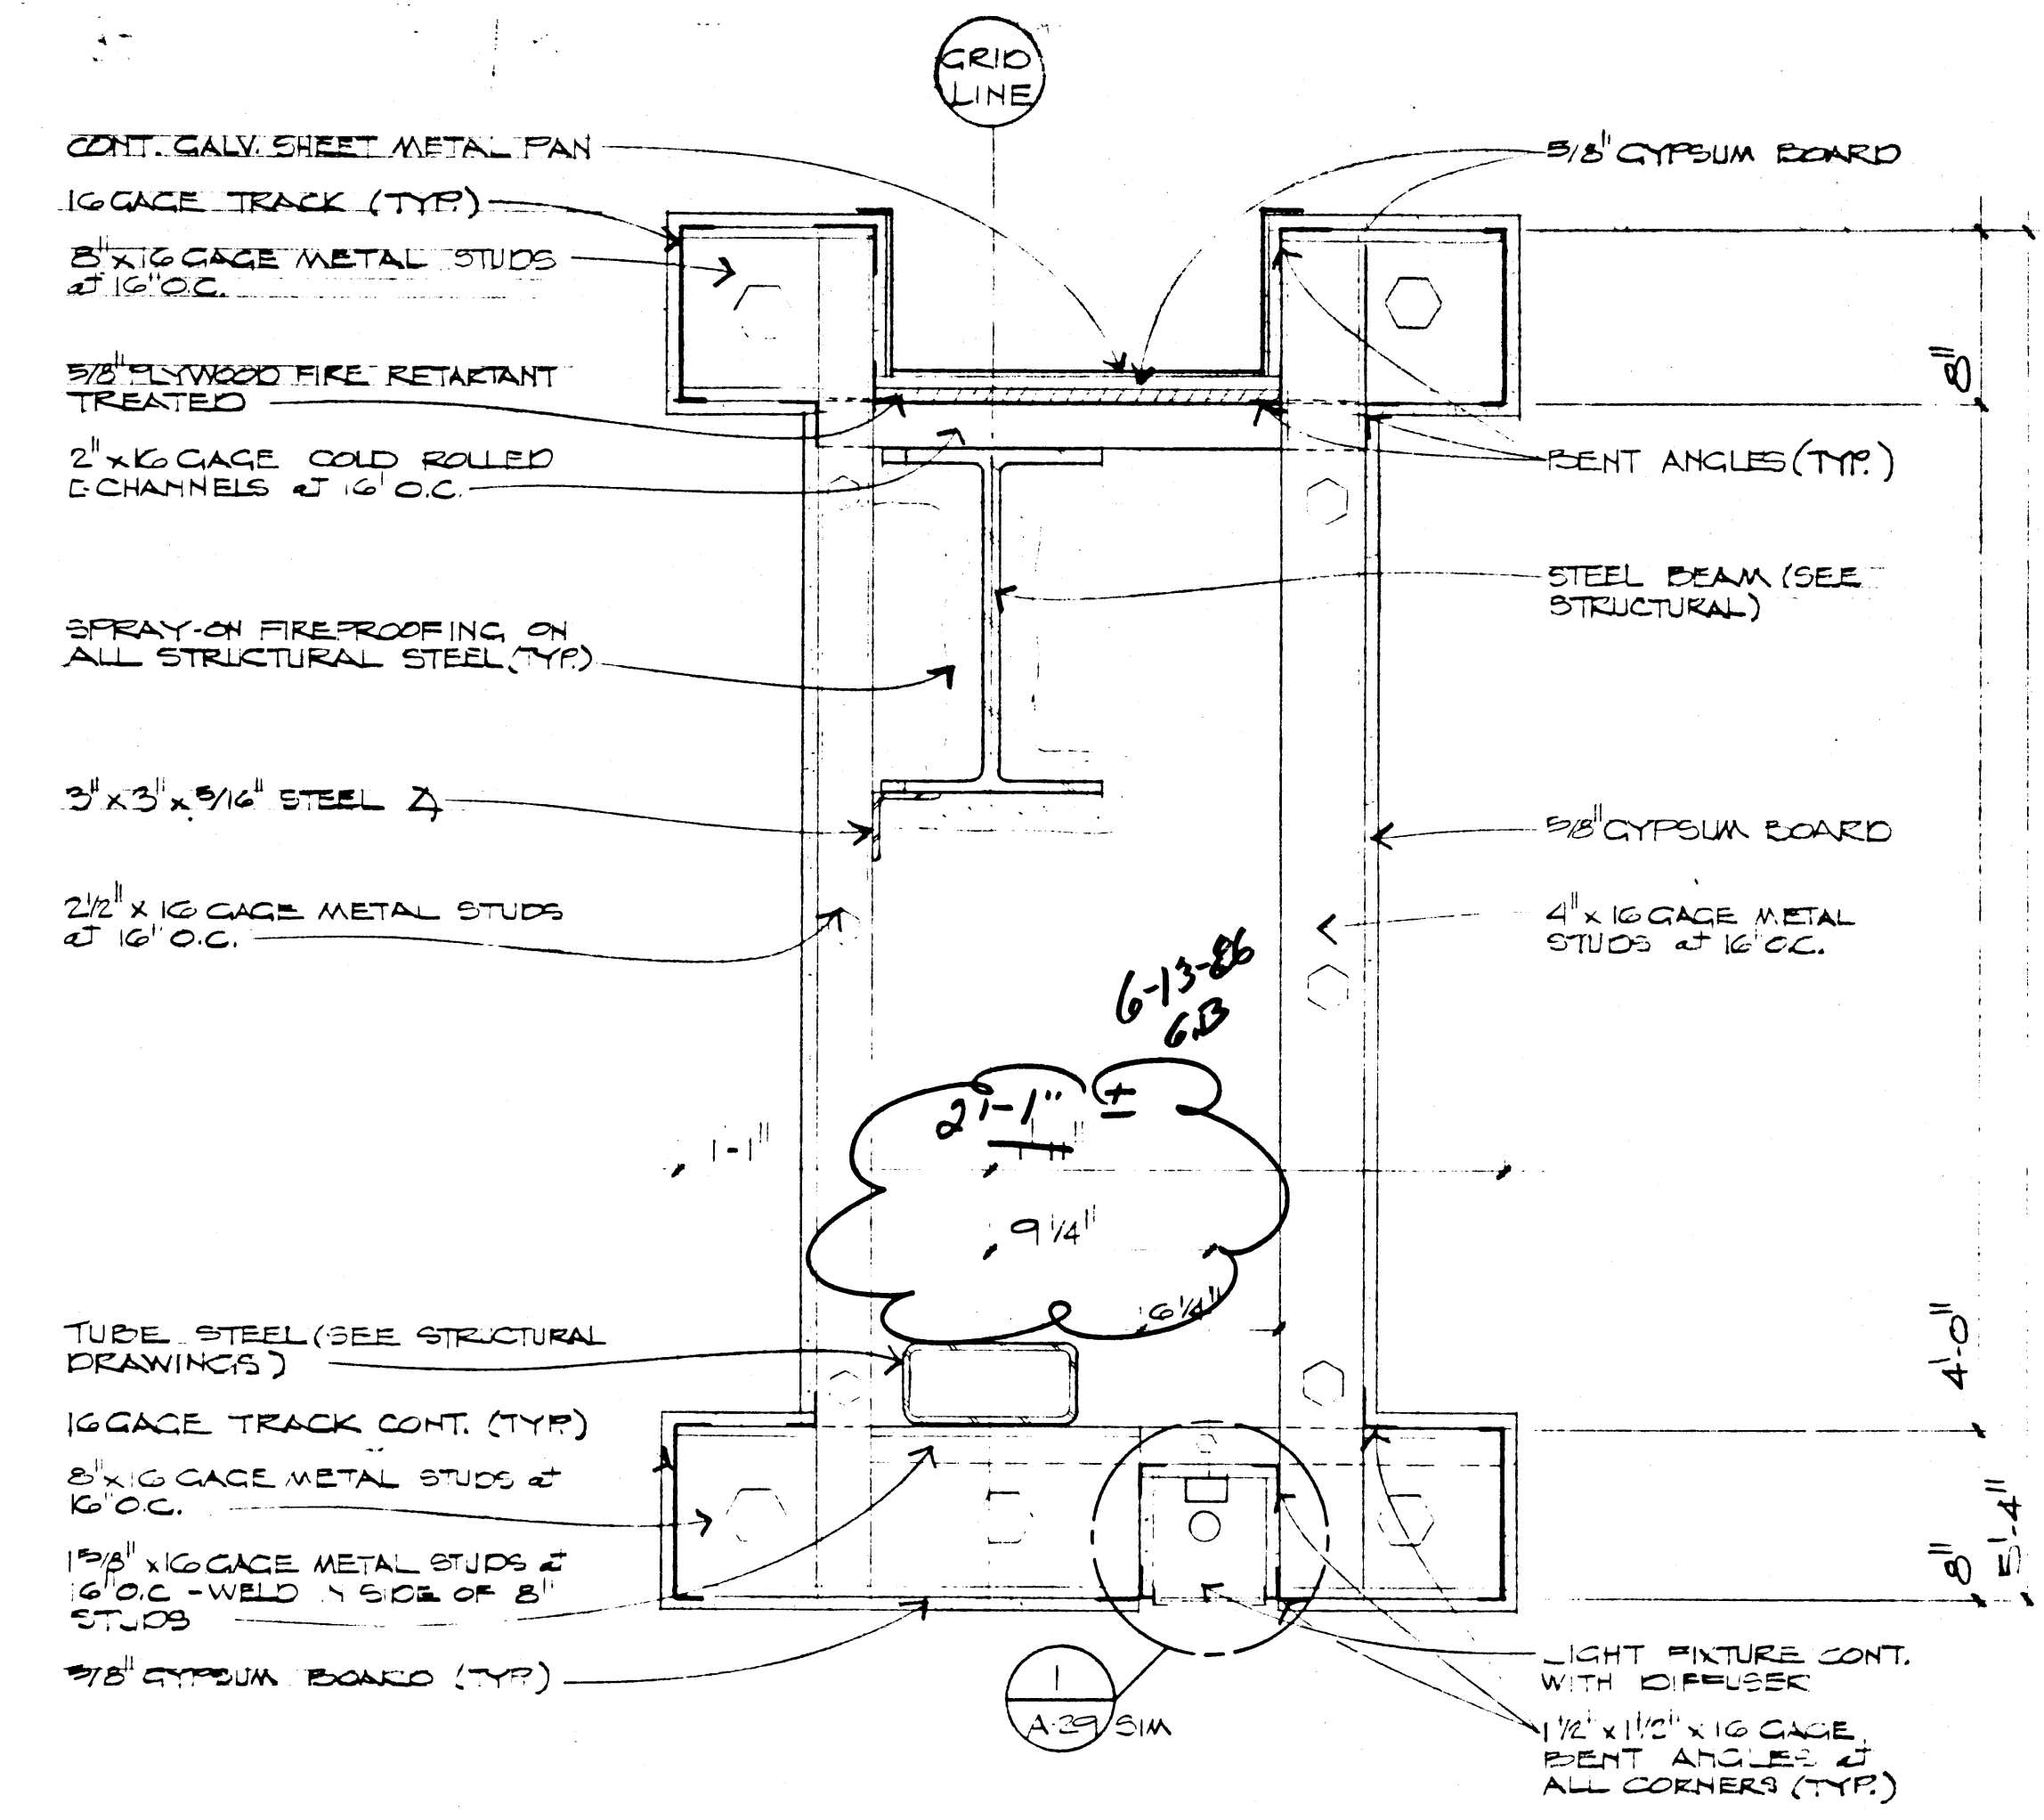 GRID
LINE
CONT. GALV. SHEET METAL PAN
16 GAGE TRACK (TYP.)
8" x 16 GAGE METAL STUDS
at 16" O.C.
5/8" PLYWOOD FIRE RETARTANT
TREATED
2" x 16 GAGE COLD ROLLED
[-CHANNELS at 16" O.C.
SPRAY-ON FIREPROOFING ON
ALL STRUCTURAL STEEL (TYP.)
3" x 3" x 5/16" STEEL
2 1/2" x 16 GAGE METAL STUDS
at 16" O.C.
TUBE STEEL (SEE STRUCTURAL
DRAWINGS)
16 GAGE TRACK CONT. (TYP.)
8" x 16 GAGE METAL STUDS at
16" O.C.
1 5/8" x 16 GAGE METAL STUDS at
16" O.C - WELD SIDE OF 8"
STUDS
5/8" GYPSUM BOARD (TYP.)
6-13-86
G.B
2'-1" ±
1-1"
9 1/4"
6 1/4"
1
A-29 SIM
5/8" GYPSUM BOARD
BENT ANGLES (TYP.)
STEEL BEAM (SEE
STRUCTURAL)
5/8" GYPSUM BOARD
4" x 16 GAGE METAL
STUDS at 16" O.C.
LIGHT FIXTURE CONT.
WITH DIFFUSER
1 1/2" x 1 1/2" x 16 GAGE
BENT ANGLES at
ALL CORNERS (TYP.)
8"
4'-0"
8"
5'-4"